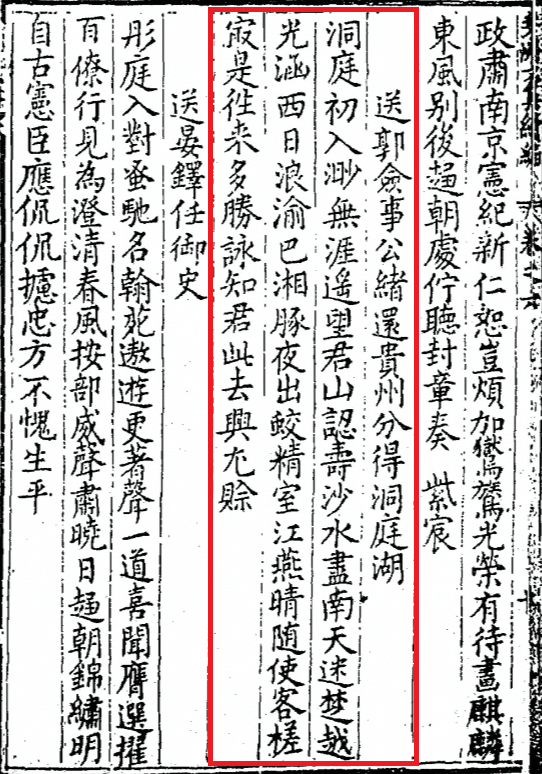 政肅南京憲紀新仁恕豈煩加獄鷟光榮有待畫麒麟
東風別後趍朝處佇聽封章奏 紫宸
送郭僉事公緒還貴州分得洞庭湖
洞庭初入渺無涯遥望君山認夀沙水盡南天迷楚越
光涵西日浪渝巴湘豚夜出蛟精室江燕晴随使客槎
㝡是徃来多勝詠知君此去興尤賒
送晏鐸任御史
彤庭入對蚤馳名翰苑遨遊更著聲一道喜聞膺選擢
百僚行見為澄清春風按部威聲肅曉日趍朝錦繡明
自古憲臣應侃侃攄忠方不愧生平